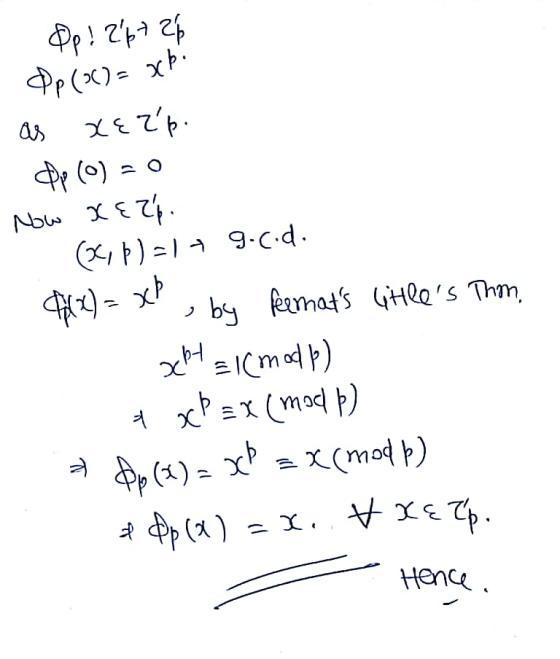 Φp: Zp → Zp
Φp(x) = x^p.
as x ∈ Zp.
Φp(0) = 0
Now x ∈ Zp.
(x, p) = 1 → g.c.d.
Φp(x) = x^p, by fermat's little's Thm.
x^(p-1) ≡ 1 (mod p)
⇒ x^p ≡ x (mod p)
⇒ Φp(x) = x^p ≡ x (mod p)
⇒ Φp(x) = x. ∀ x ∈ Zp.
Hence.